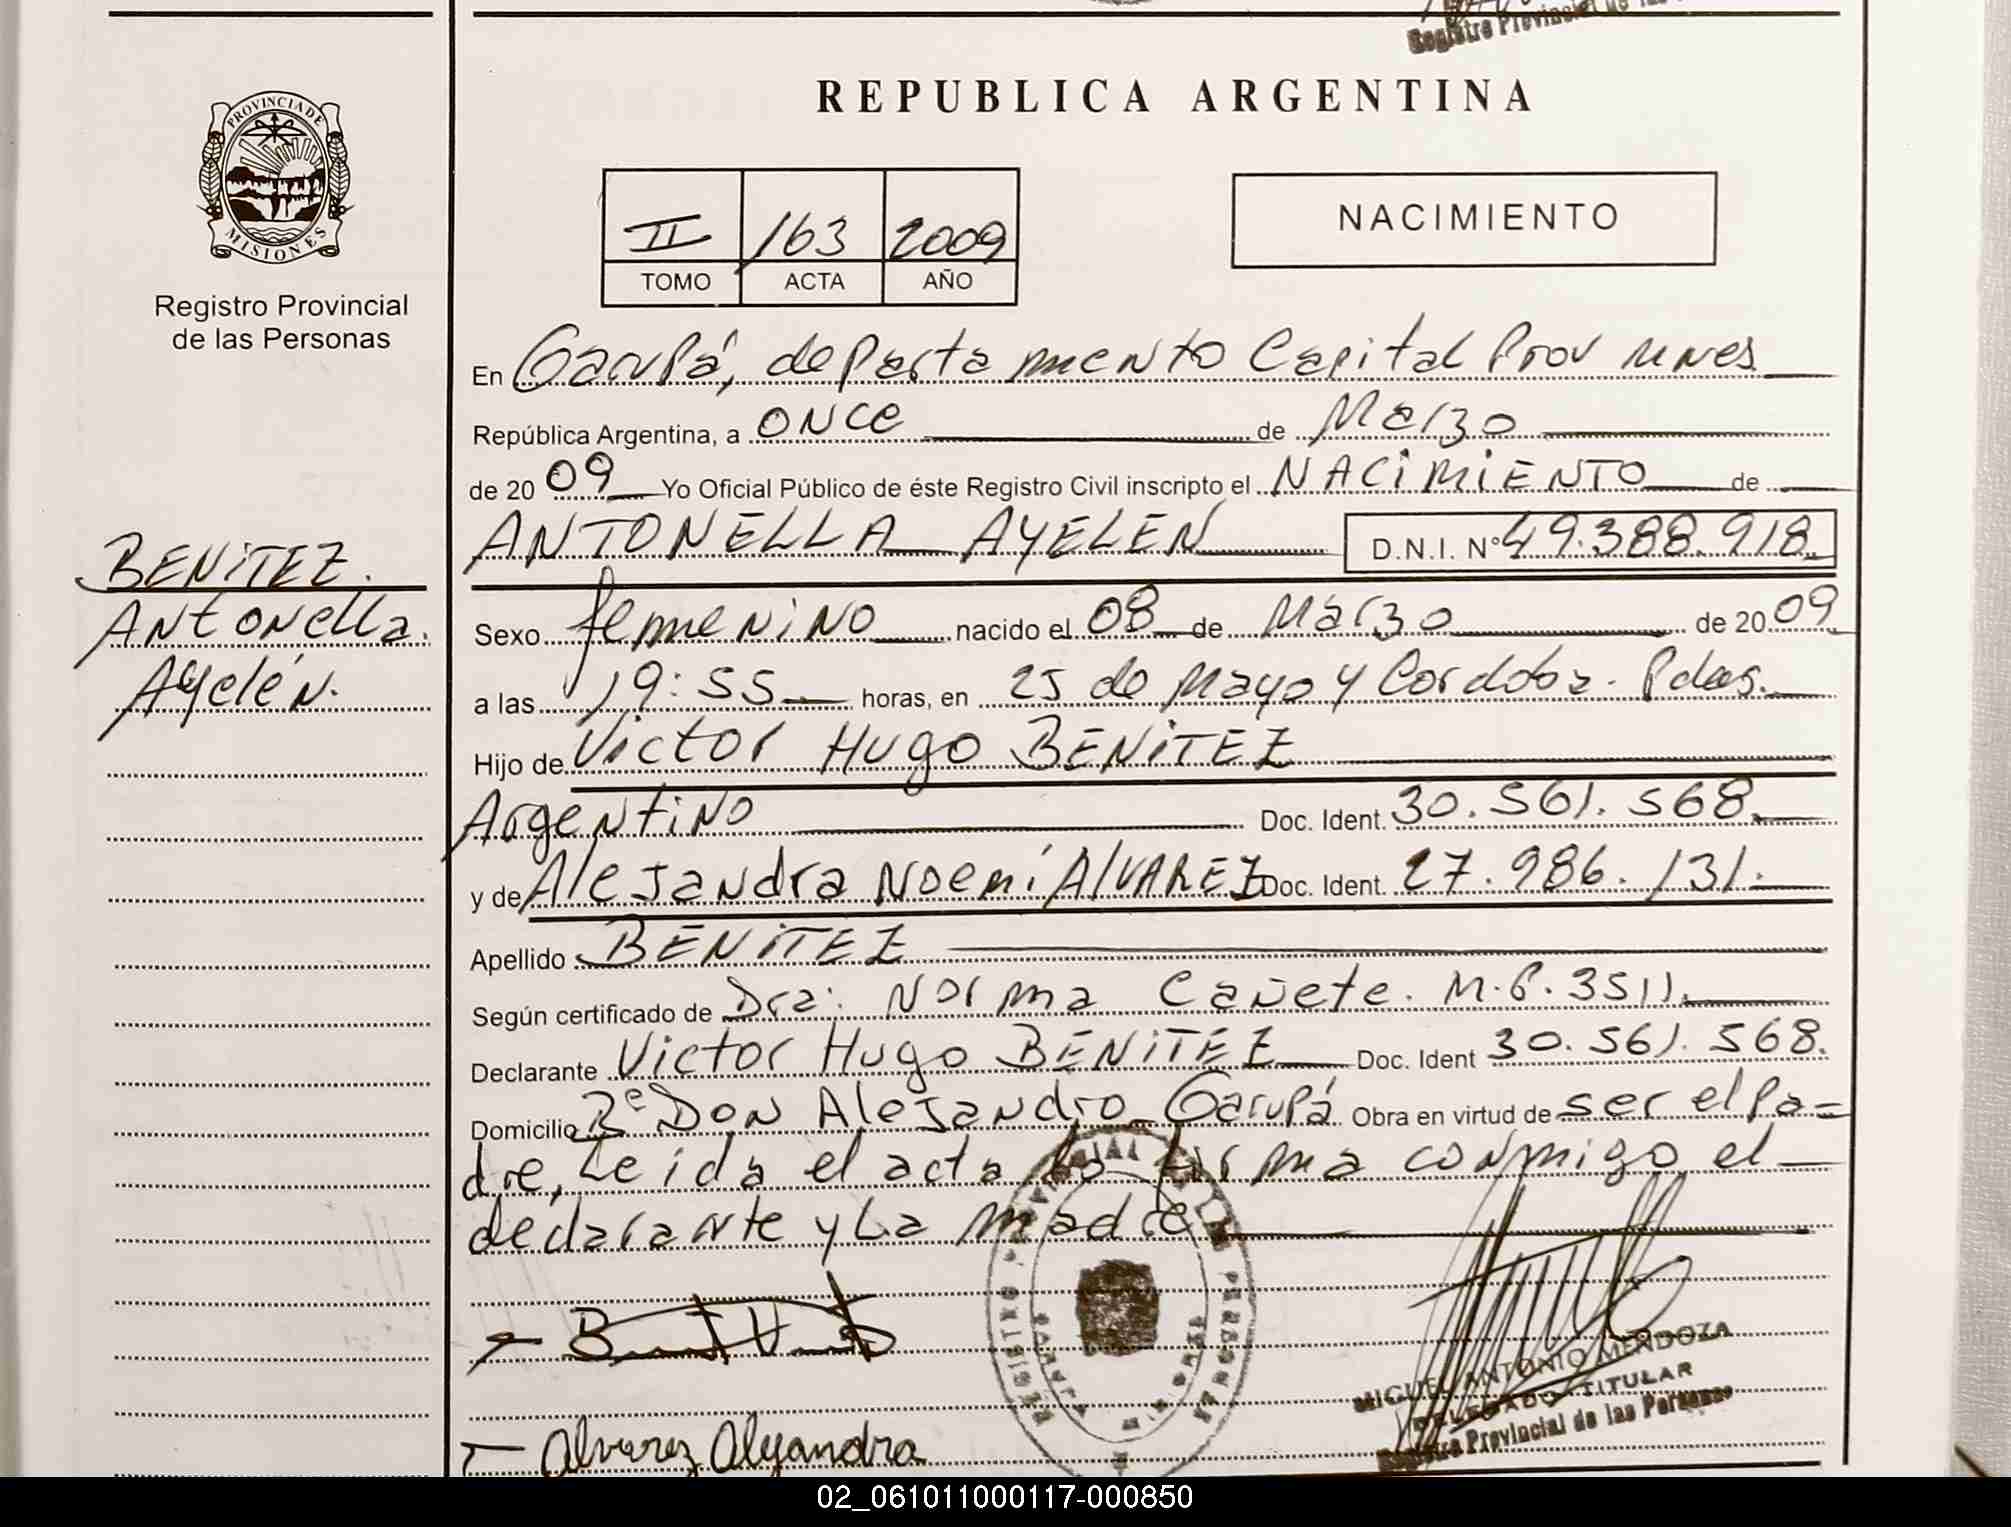 Registro Provincial de las
REPUBLICA ARGENTINA
PROVINCIA DE
MISIONES
Registro Provincial
de las Personas
II 163 2009
TOMO ACTA AÑO
NACIMIENTO
En Garupá, departamento Capital Prov Mnes.
República Argentina, a once de Marzo
de 2009 Yo Oficial Público de éste Registro Civil inscripto el NACIMIENTO de
ANTONELLA AYELEN D.N.I. Nº 49.388.918
BENITEZ.
Antonella.
Ayelén.
Sexo femenino nacido el 08 de Marzo de 2009
a las 19:55 horas, en 25 de Mayo y Cordoba. Pdas.
Hijo de Victor Hugo BENITEZ
Argentino Doc. Ident. 30.561.568.
y de Alejandra Noemí AlVAREZ Doc. Ident. 27.986.131.
Apellido BENITEZ
Según certificado de Dra: Norma Cañete. M.P. 3511.
Declarante Victor Hugo BENITEZ Doc. Ident 30.561.568.
Domicilio Bº Don Alejandro Garupá Obra en virtud de ser el pa-
dre, Leida el acta la firma conmigo el
declarante y La madre
REGISTRO PROVINCIAL DE LAS PERSONAS
GARUPA
MISIONES
MIGUEL ANTONIO MENDOZA
DELEGADO TITULAR
Registro Provincial de las Personas
Alvarez Alejandra
02_061011000117-000850